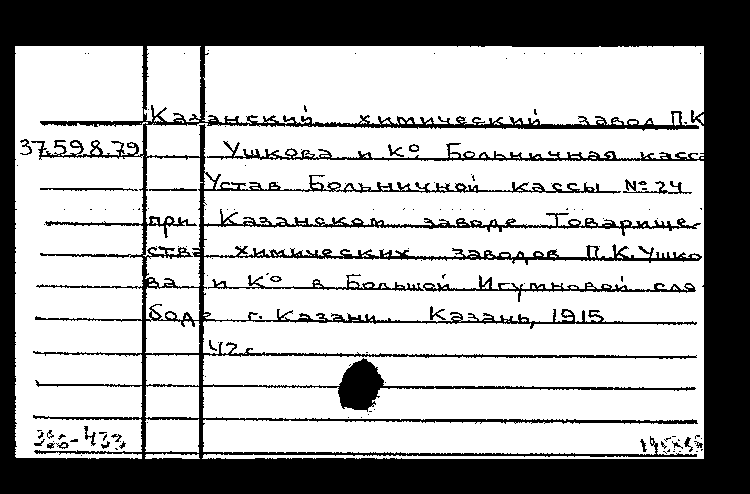 Казанский химический завод П.К
37.59.8.79 Ушкова и Ко Больничная касса
Устав Больничной кассы № 24
при Казанском заводе Товарище-
ства химических заводов П.К.Ушко
ва и Ко в Большой Игумновой сло-
боде г. Казани. Казань, 1915
42 с
-433